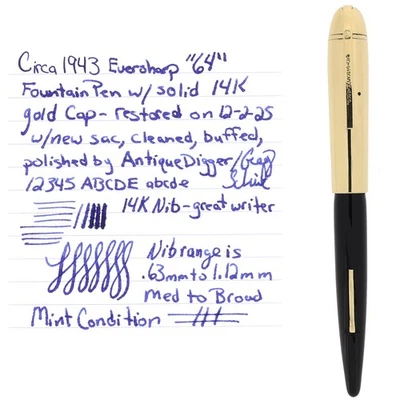 Circa 1943 Eversharp "64"
Fountain Pen w/ solid 14K
gold Cap - restored on 12-2-25
w/new sac, cleaned, buffed,
polished by AntiqueDigger/Gregg
12345 ABCDE abcde
14K Nib - great writer
Nib range is
.63mm to 1.12mm
Med to Broad
Mint Condition